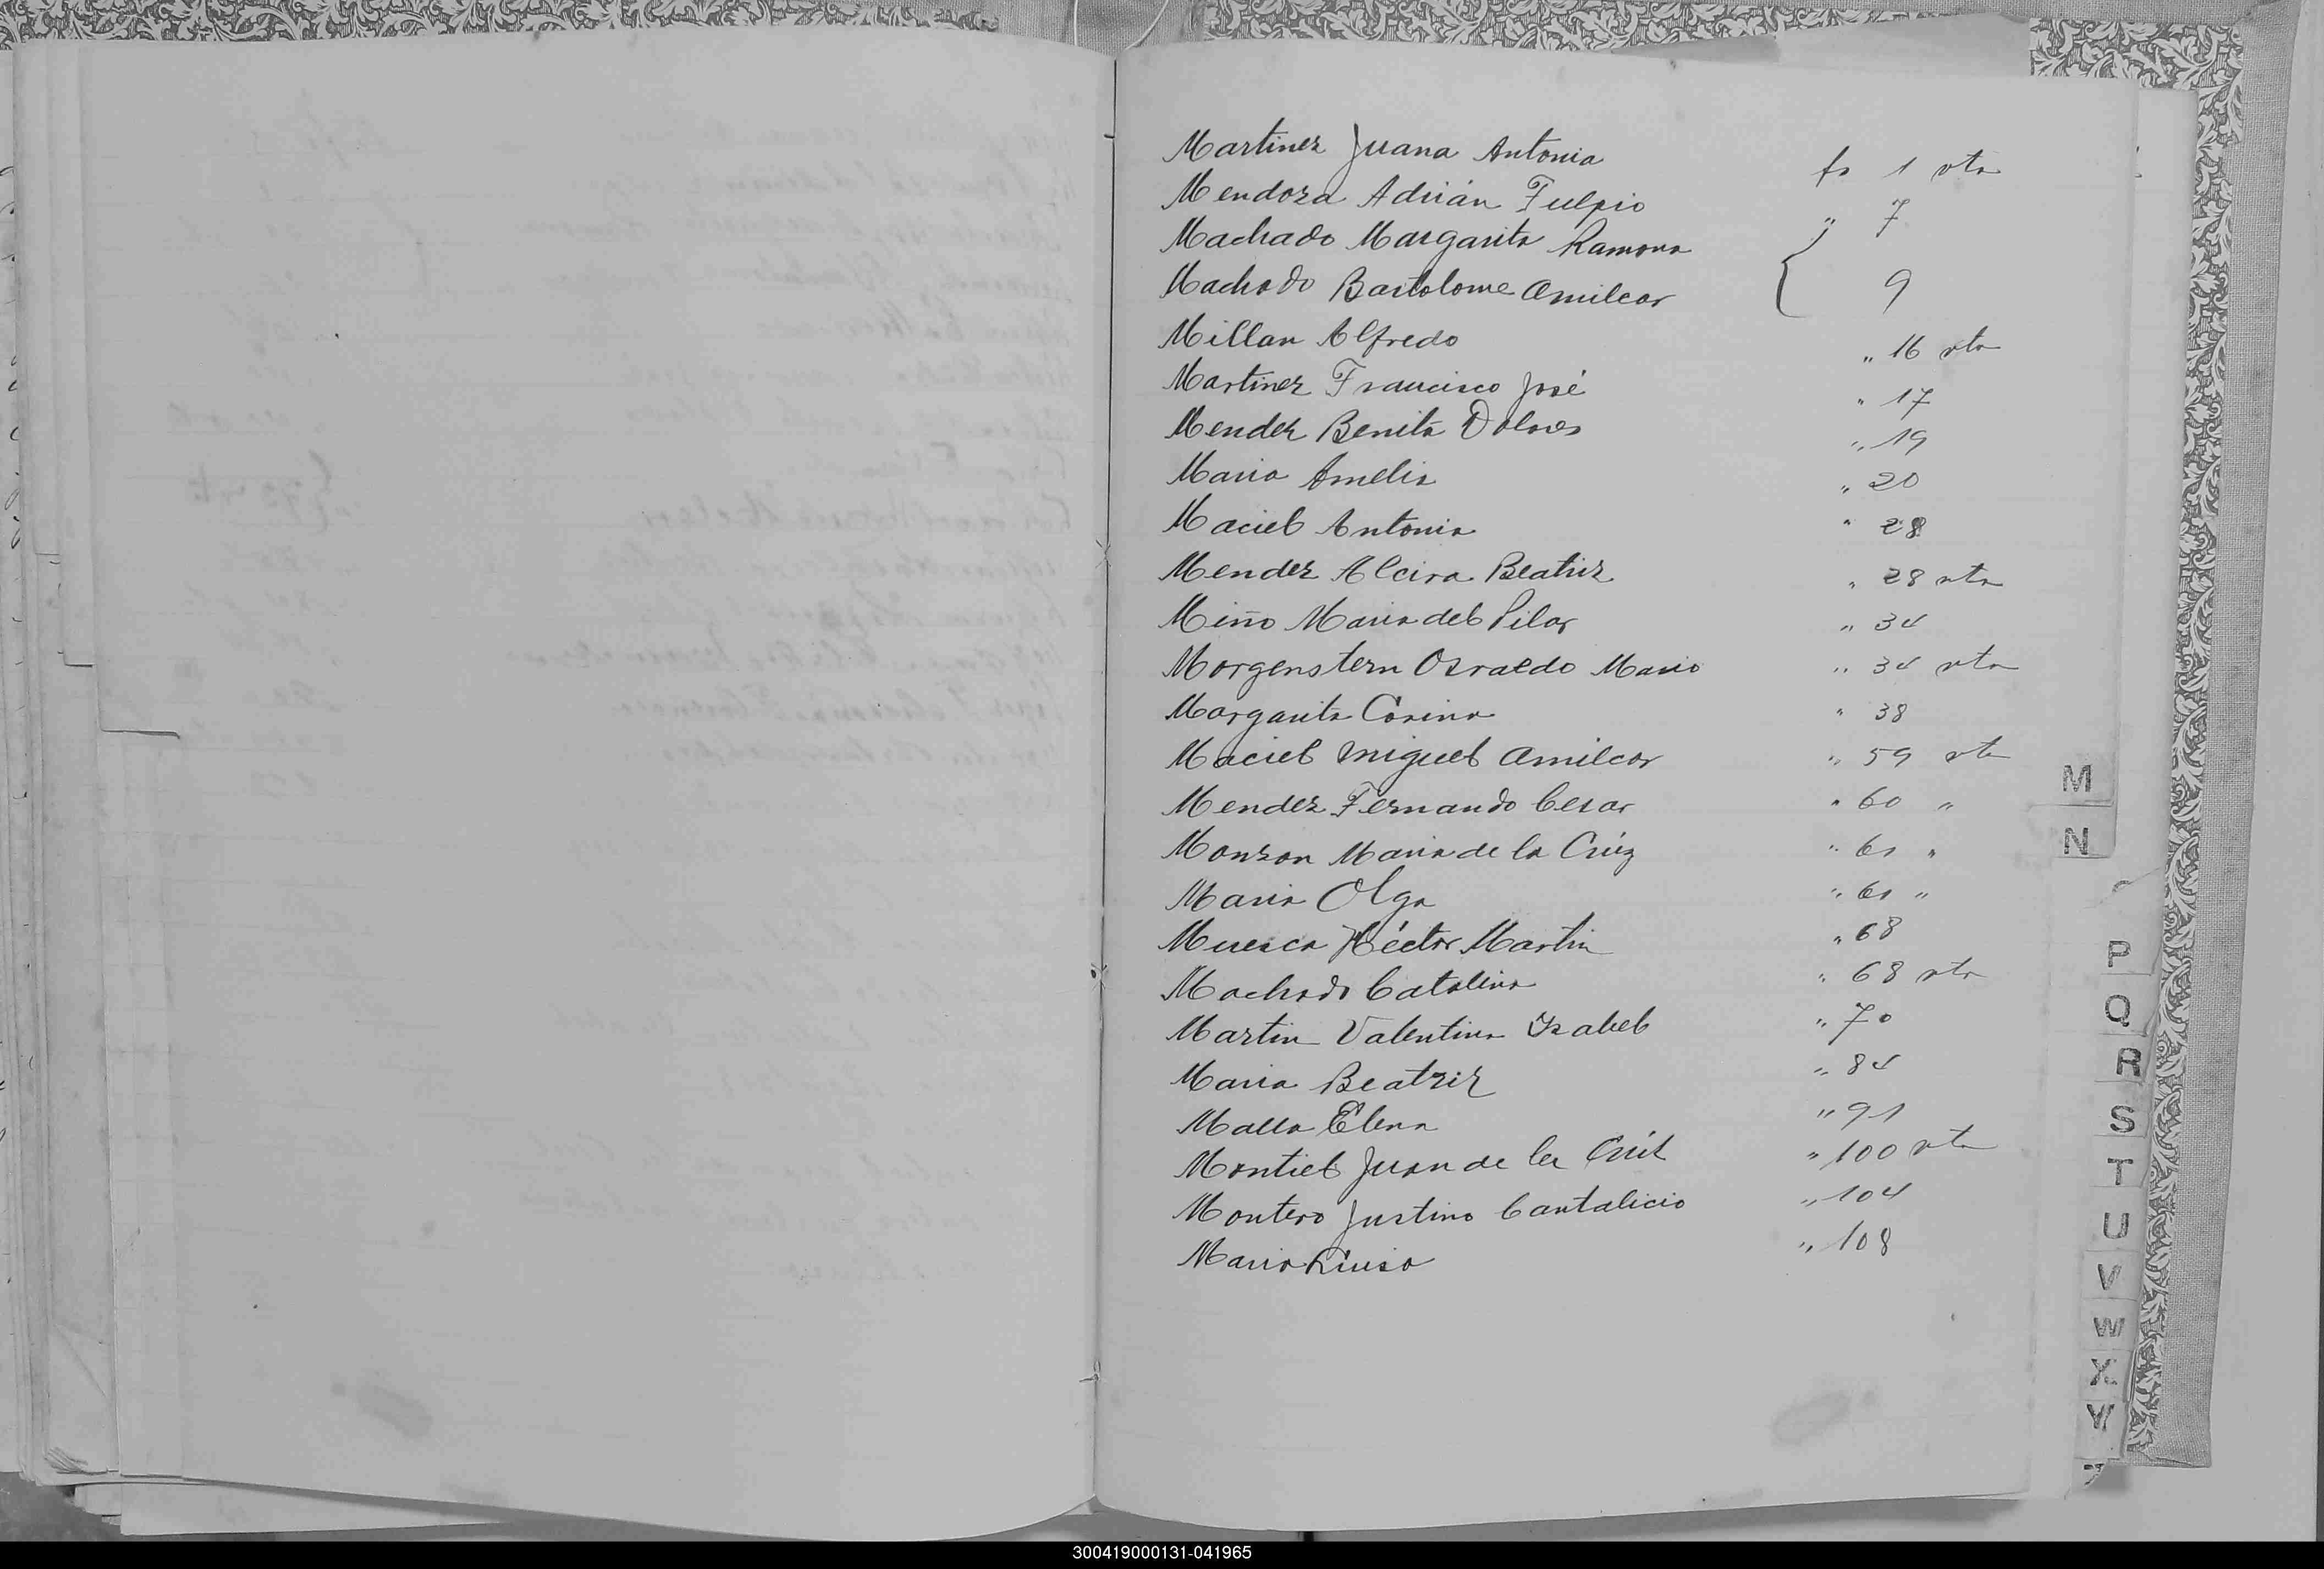 Martinez Juana Antonia fo 1 vta
Mendoza Adrián Fulpio " 7
Machado Margarita Ramona
Machado Bartolome Amilcar 9
Millan Alfredo " 16 vta
Martinez Francisco José " 17
Mendez Benita Dolores " 19
Maria Amelia " 20
Maciel Antonia " 28
Mendez Alcira Beatriz " 28 vta
Miño Maria del Pilar " 34
Morgenstern Osvaldo Mario " 34 vta
Margarita Corina " 38
Maciel Miguel Amilcar " 59 vta
Mendez Fernando Cesar " 60 "
Monzon Maria de la Crúz " 61 "
Maria Olga " 61 "
Héctor Martin " 68
Machado Catalina " 68 vta
Martin Valentina Isabel " 70
Maria Beatriz " 84
Elena " 91
Montiel Juan de la " 100 vta
Montero Justino Cantalicio " 104
Maria " 108
M
N
P
Q
R
S
T
U
V
W
X
Y
300419000131-041965